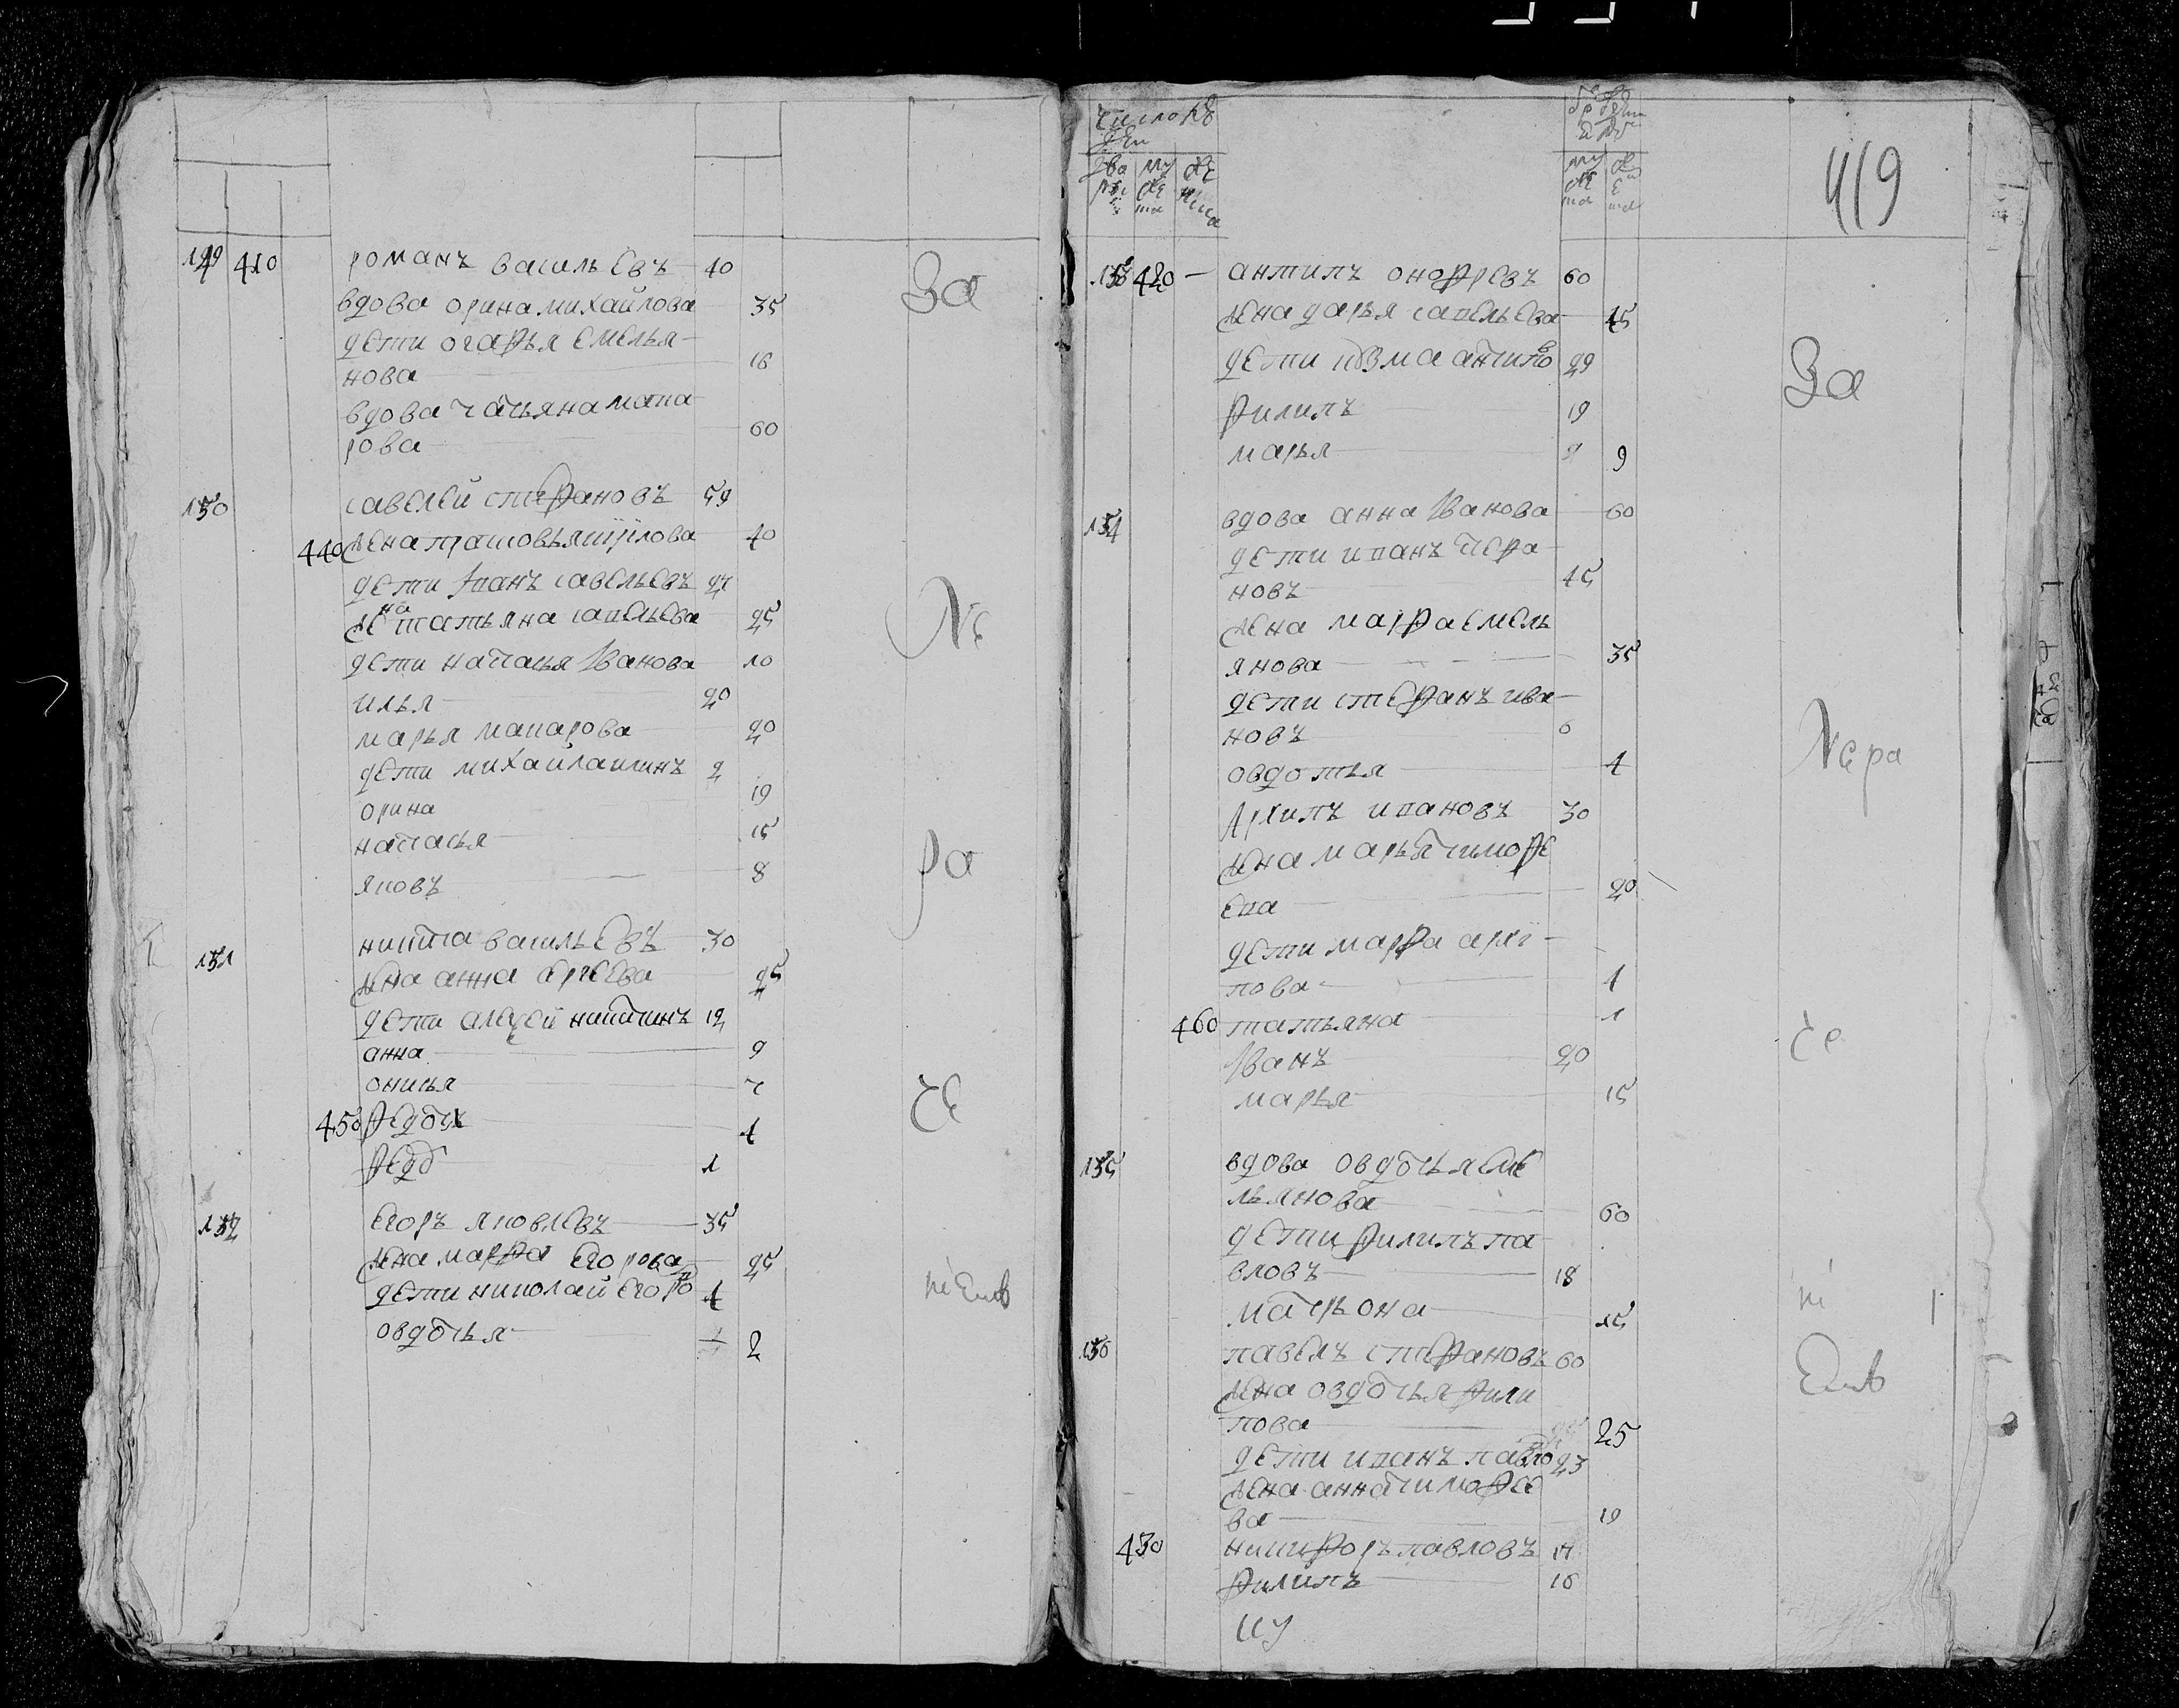 149 410 романъ васильевъ 40
вдова орина михаилова 35
дети огафья емелья-
нова 16
вдова татьяна мака
рова 60
За
150 савелей стефановъ 59
440 жена прасковья
40
дети Иванъ савельевъ
жена татьяна савельева 25
дети наталья Иванова 10
Не
илья 20
марья макарова 20
дети михайла илинъ 2
орина 19
наталья 15
яковъ 8
ра
151 никита васильевъ 30
жена анна сергеева 25
дети алексей никитинъ 12
анна 9
онисья 7
че
450 федосья 4
федо 1
152 егоръ яковлевъ 35
жена марфа егорова 25
дети николай егоро 4
нiемъ
овдотья 2
число людеи
дво ровы му же ска
му же ска же нска
419
153 420 - антипъ онофревъ 60
жена дарья савельева 45
дети козма антипов 29
За
филипъ 19
марья 9
154 вдова анна Иванова 60
дети иванъ стефа
новъ 45
жена марфа емель
янова 35
дети стефанъ ива-
новъ 6
Нера
овдотья 4
Архипъ ивановъ 30
жена марья тимофе
ева 20
дети марфа архи-
пова 4
460 татьяна 1
че
Иванъ 20
марья 15
155 вдова овдотья еме
льянова 60
дети филипъ па
вловъ 18
нi
матрона 15
156 павелъ стефановъ 60
жена овдотья фили
емъ
пова 25
дети иванъ павло 23
жена анна тимофее
ва 19
430 никифоръ павловъ 17
филипъ 16